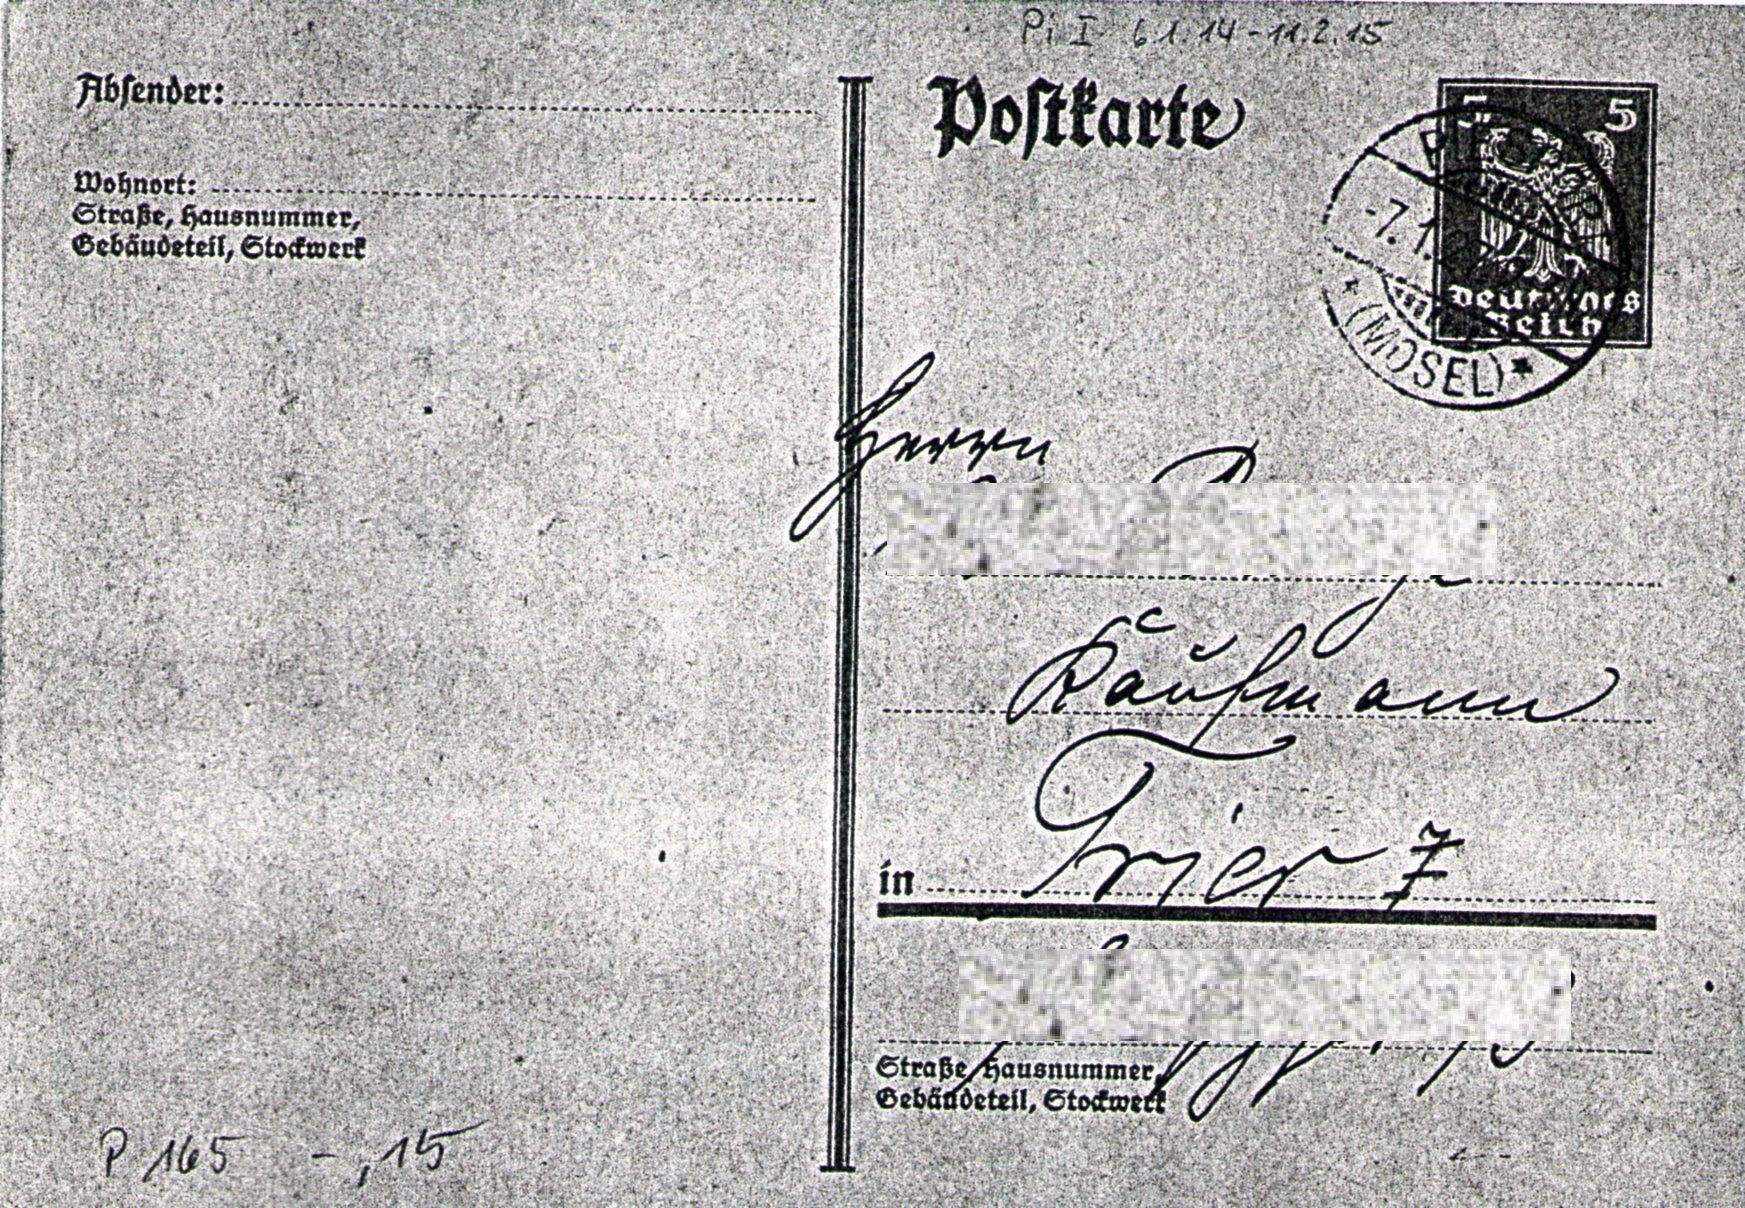 Pi I 6.1.14 - 11.2.15
Absender:
Wohnort:
Straße, Hausnummer,
Gebäudeteil, Stockwerk
Postkarte
5 5
Deutsches
Reich
-7.1.
(MOSEL)
Herrn
Kaufmann
in Trier 7
Straße, Hausnummer,
Gebäudeteil, Stockwerk
P 165 -,15